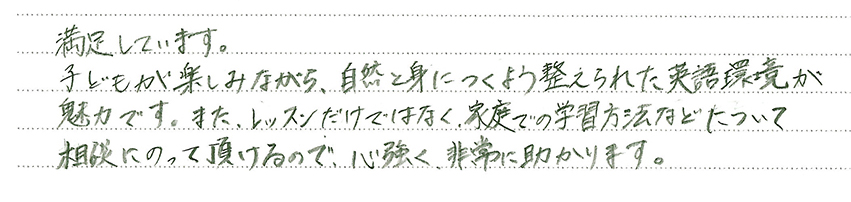 満足しています。
子どもが楽しみながら、自然と身につくよう整えられた英語環境が
魅力です。また、レッスンだけではなく、家庭での学習方法などについて
相談にのって頂けるので、心強く、非常に助かります。